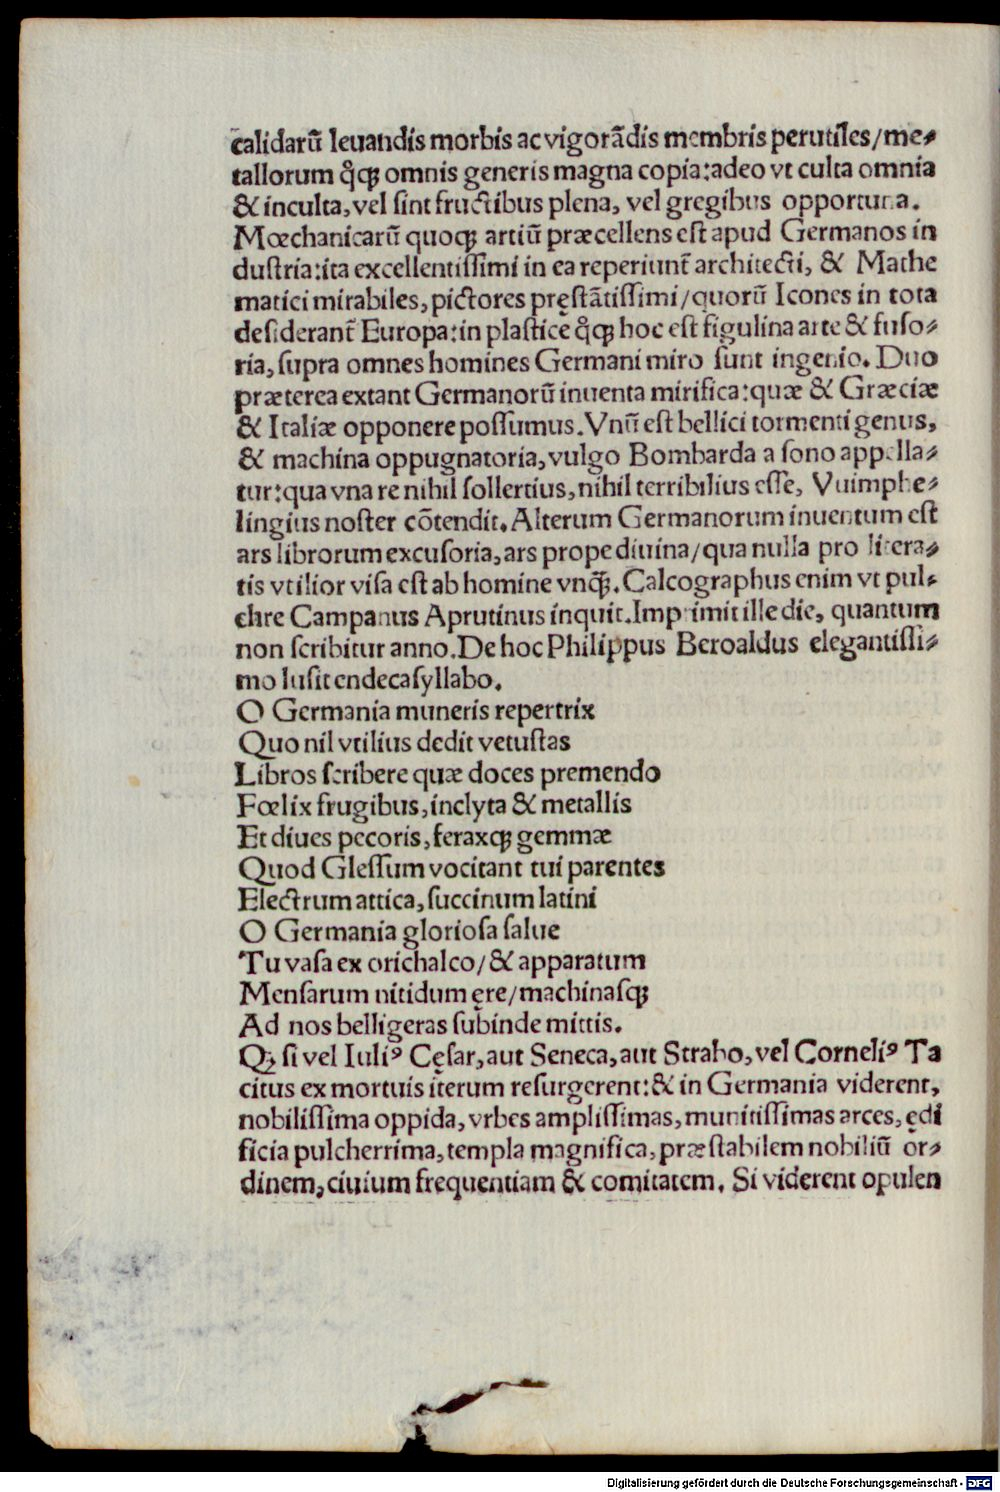 calidarū leuandis morbis ac vigorādis membris perutiles/me⸗
tallorum qͦꝙ omnis generis magna copia:adeo vt culta omnia
& inculta, vel ſint fructibus plena, vel gregibus opportuna.
Mœchanicarū quoqꝫ artiū præcellens eſt apud Germanos in
duſtria:ita excellentiſſimi in ea reperiunt̄ architecti, & Mathe
matici mirabiles, pictores pręſtātiſſimi/quorū Icones in tota
deſiderant̄ Europa:in plaſticę qͦꝙ hoc eſt figulina arte & fuſo⸗
ria, ſupra omnes homines Germani miro ſunt ingenio. Duo
præterea extant Germanorū inuenta mirifica:quæ & Græciæ
& Italiæ opponere poſſumus. Vnū eſt bellici tormenti genus,
& machina oppugnatoria, vulgo Bombarda a ſono appella⸗
tur:qua vna re nihil ſollertius, nihil terribilius eſſe, Vuimphe⸗
lingius noſter cōtendit. Alterum Germanorum inuentum eſt
ars librorum excuſoria, ars prope diuina/qua nulla pro litera⸗
tis vtilior viſa eſt ab homine vnqꝫ̄. Calcographus enim vt pul⸗
chre Campanus Aprutinus inquit. Imprimit ille die, quantum
non ſcribitur anno. De hoc Philippus Beroaldus elegantiſſi⸗
mo luſit endecaſyllabo.
O Germania muneris repertrix
Quo nil vtilius dedit vetuſtas
Libros ſcribere quæ doces premendo
Fœlix frugibus, inclyta & metallis
Et diues pecoris, feraxqꝫ gemmæ
Quod Gleſſum vocitant tui parentes
Electrum attica, ſuccinum latini
O Germania glorioſa ſalue
Tu vaſa ex orichalco/& apparatum
Menſarum nitidum ęre/machinaſqꝫ
Ad nos belligeras ſubinde mittis.
Qꝫ ſi vel Iuliꝰ Cęſar, aut Seneca, aut Strabo, vel Corneliꝰ Ta
citus ex mortuis iterum reſurgerent:& in Germania viderent,
nobiliſſima oppida, vrbes ampliſſimas, munitiſſimas arces, ędi
ficia pulcherrima, templa magnifica, præſtabilem nobiliū or⸗
dinem, ciuium frequentiam & comitatem. Si viderent opulen
Digitalisierung gefördert durch die Deutsche Forschungsgemeinschaft - DFG